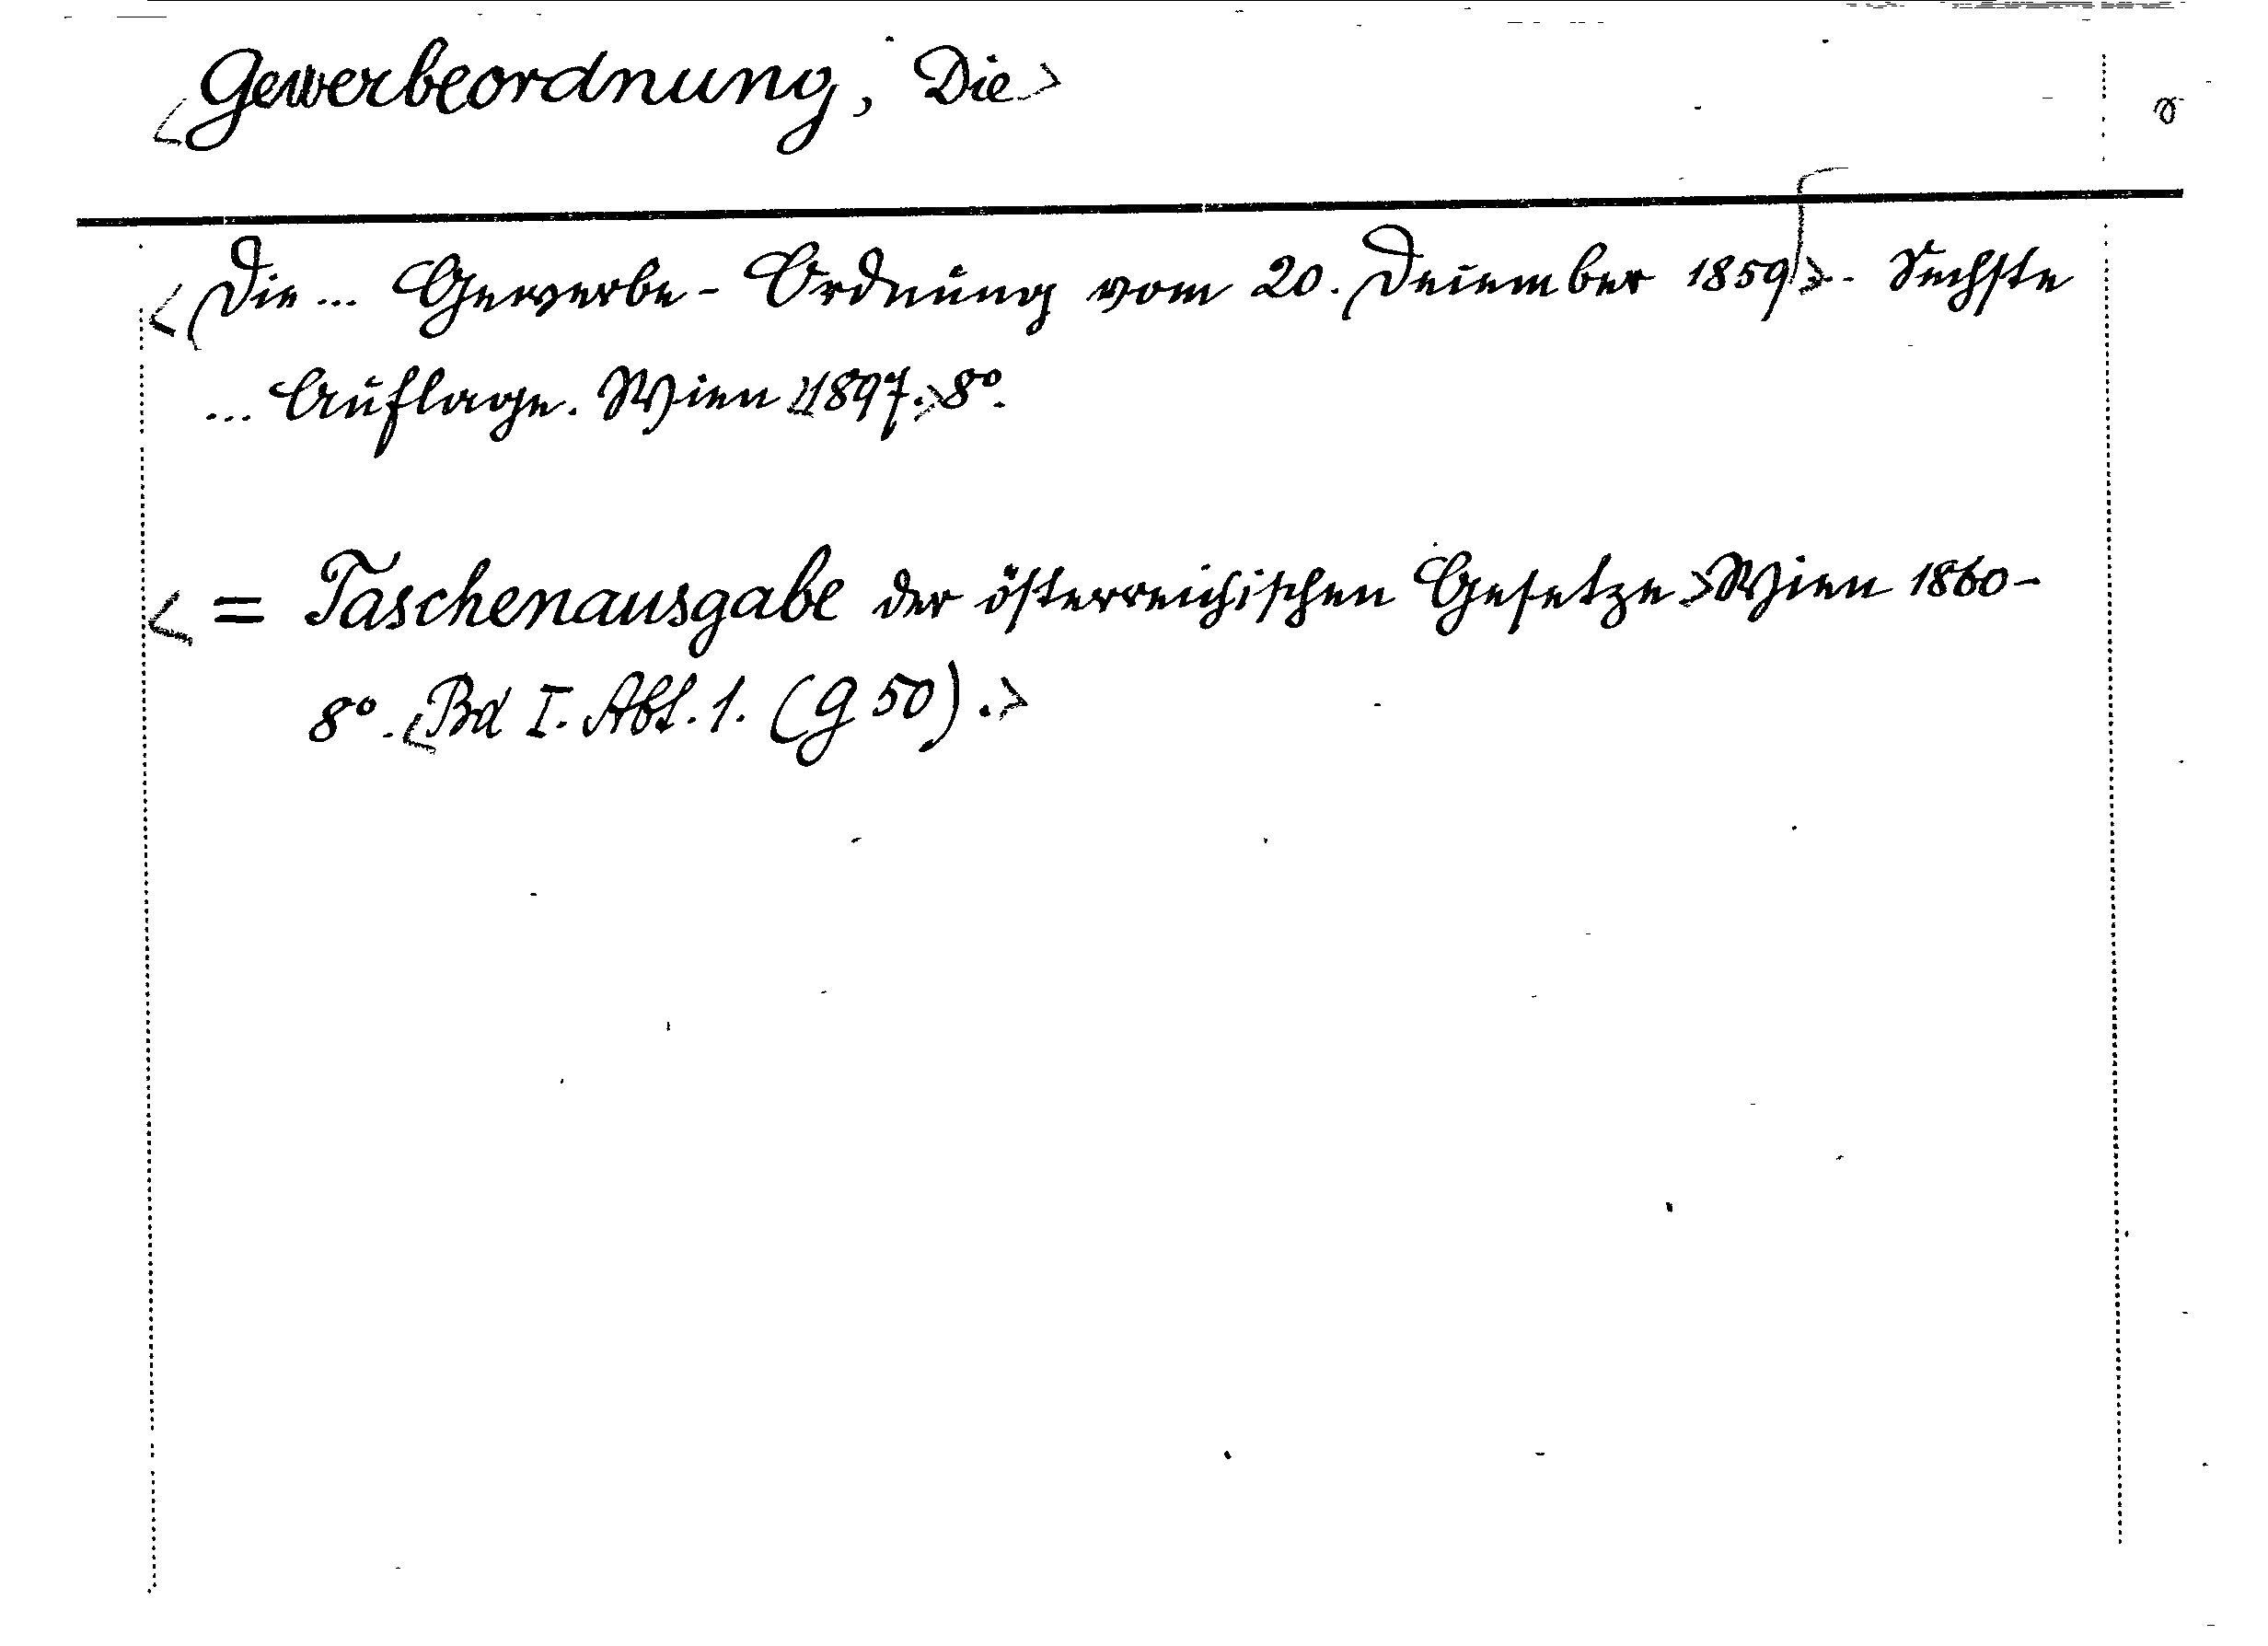 <Gewerbeordnung, Die>
<Die ... Gewerbe-Ordnung vom 20. December 1859>. Sechste
... Auflage. Wien <1897.> 8º.
<= Taschenausgabe der österreichischen Gesetze> Wien 1860-
8º. <Bd I. Abt. 1. (G 50).>